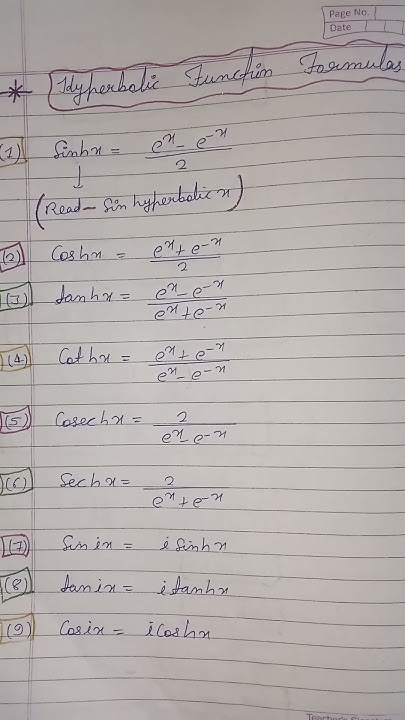 Page No.
Date
* Hyperbolic Function Formulas
(1) Sinhx = e^x - e^-x / 2
↓
(Read - Sin hyperbolic x)
(2) Coshx = e^x + e^-x / 2
(3) tanhx = e^x - e^-x / e^x + e^-x
(4) Cothx = e^x + e^-x / e^x - e^-x
(5) Cosechx = 2 / e^x - e^-x
(6) Sechx = 2 / e^x + e^-x
(7) Sin ix = i Sinhx
(8) tanix = i tanhx
(9) Cosix = i Coshx